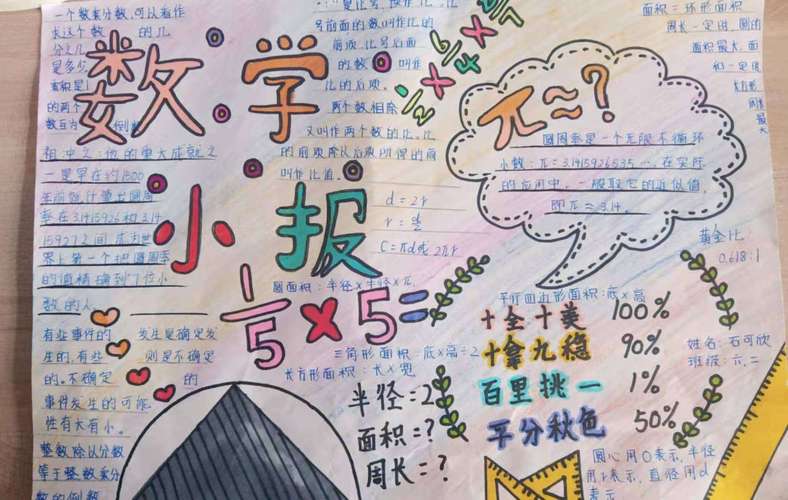 一个数乘分数，可以看作
求这个数 的几
分之几
是多少
的两个
数互为 倒数
数学
小报
祖冲之：他的重大成就之
一是早在约1500
年前就计算出圆周
率在3.1415926和3.14
15927之间，成为世
界上第一个把圆周率
的值精确到7位小
数的人。
有些事件的 发生是确定发
生的，有些 则是不确定
的。不确定 的
事件发生的可能
性有大有小。
整数除以分数
等于整数乘分
数的倒数
号前面的数叫作比的
前项，比号后面
的数 叫作
比的后项。
两个数相除
又叫作两个数的比。比
的前项除以后项所得的商
叫作比值。
d=2r
C=πd或2πr
圆面积：半径×半径×π
1/5×5=
三角形面积：底×高÷2
长方形面积：长×宽
半径=2
面积=?
周长=?
面积=环形面积
周长一定时，圆的
面积最大，面
π≈?
圆周率是一个无限不循环
小数：π=3.1415926535……在实际
的应用中，一般取它的近似值，
即π≈3.14。
黄金比：
0.618:1
平行四边形面积：底×高
十全十美 100%
十拿九稳 90%
百里挑一 1%
平分秋色 50%
姓名：石可欣
班级：六.二
圆心用O表示，半径
用r表示，直径用d
表示